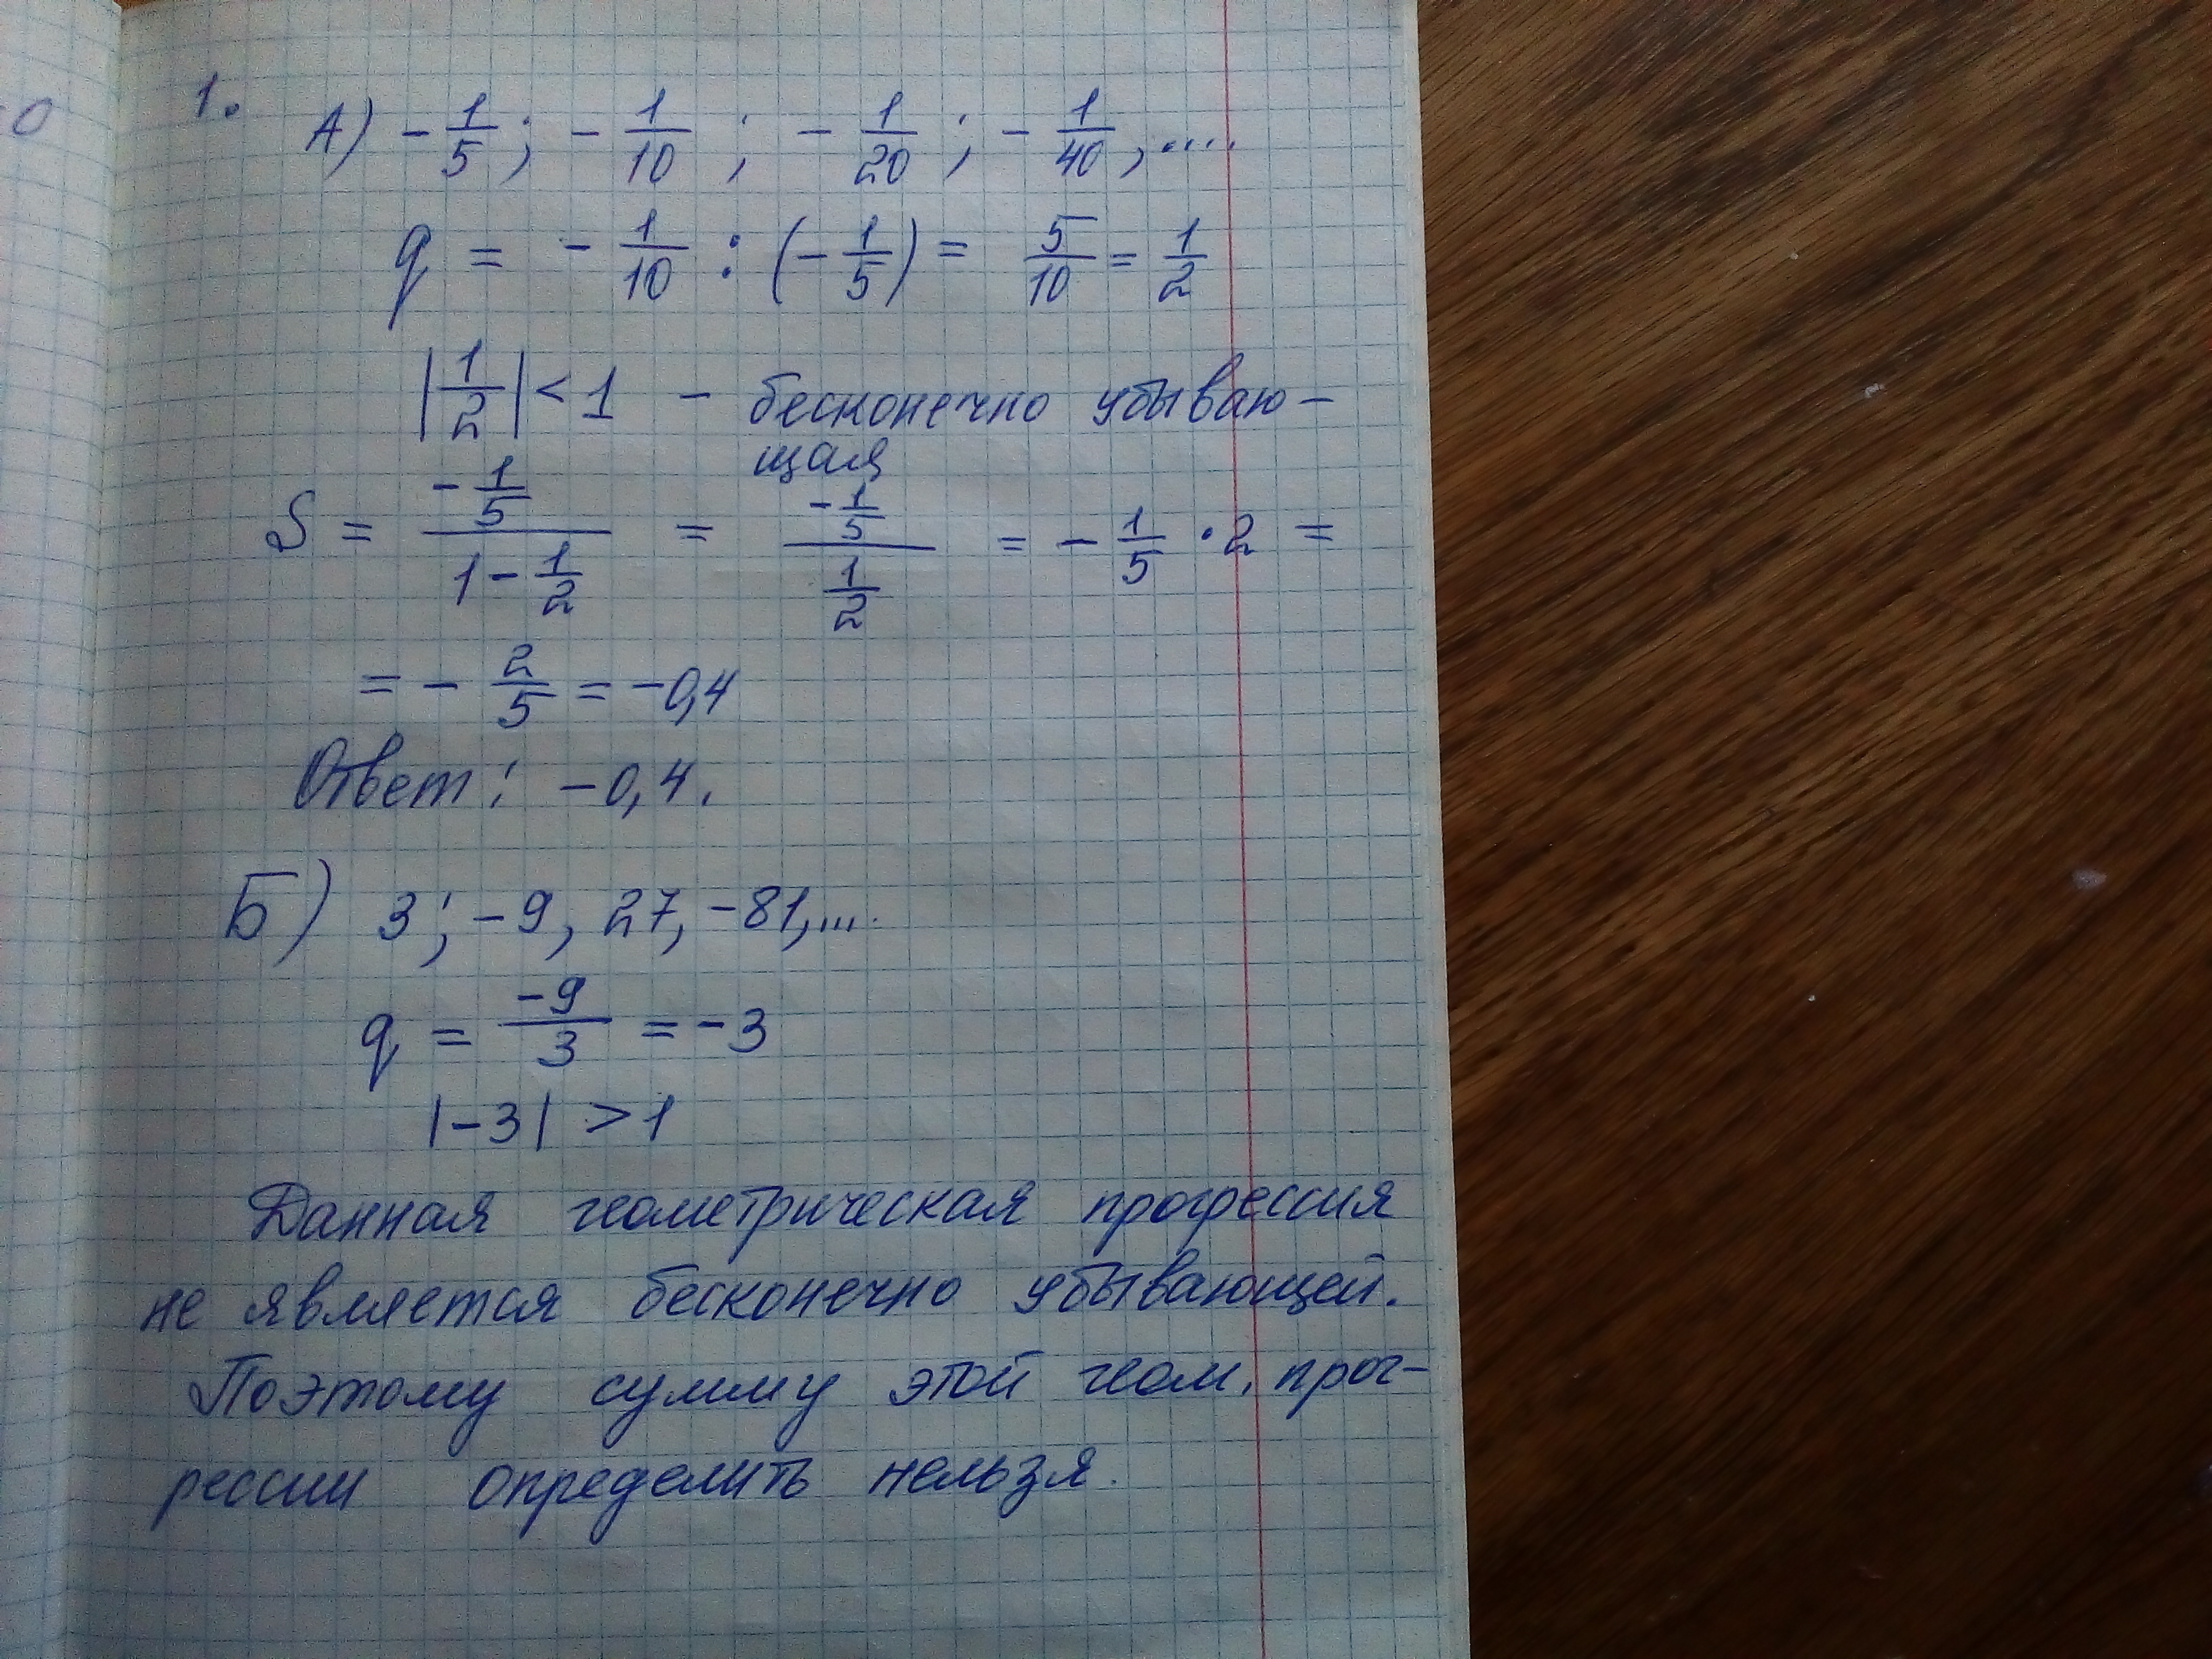 0
1.
А) -1/5; -1/10; -1/20; -1/40, ....
q = -1/10 : (-1/5) = 5/10 = 1/2
|1/2| < 1 - бесконечно убываю-
щая
S = (-1/5)/(1-1/2) = (-1/5)/(1/2) = -1/5 · 2 =
= -2/5 = -0,4
Ответ: -0,4.
Б) 3; -9, 27, -81, ...
q = -9/3 = -3
|-3| > 1
Данная геометрическая прогрессия
не является бесконечно убывающей.
Поэтому сумму этой геом. прог-
рессии определить нельзя.